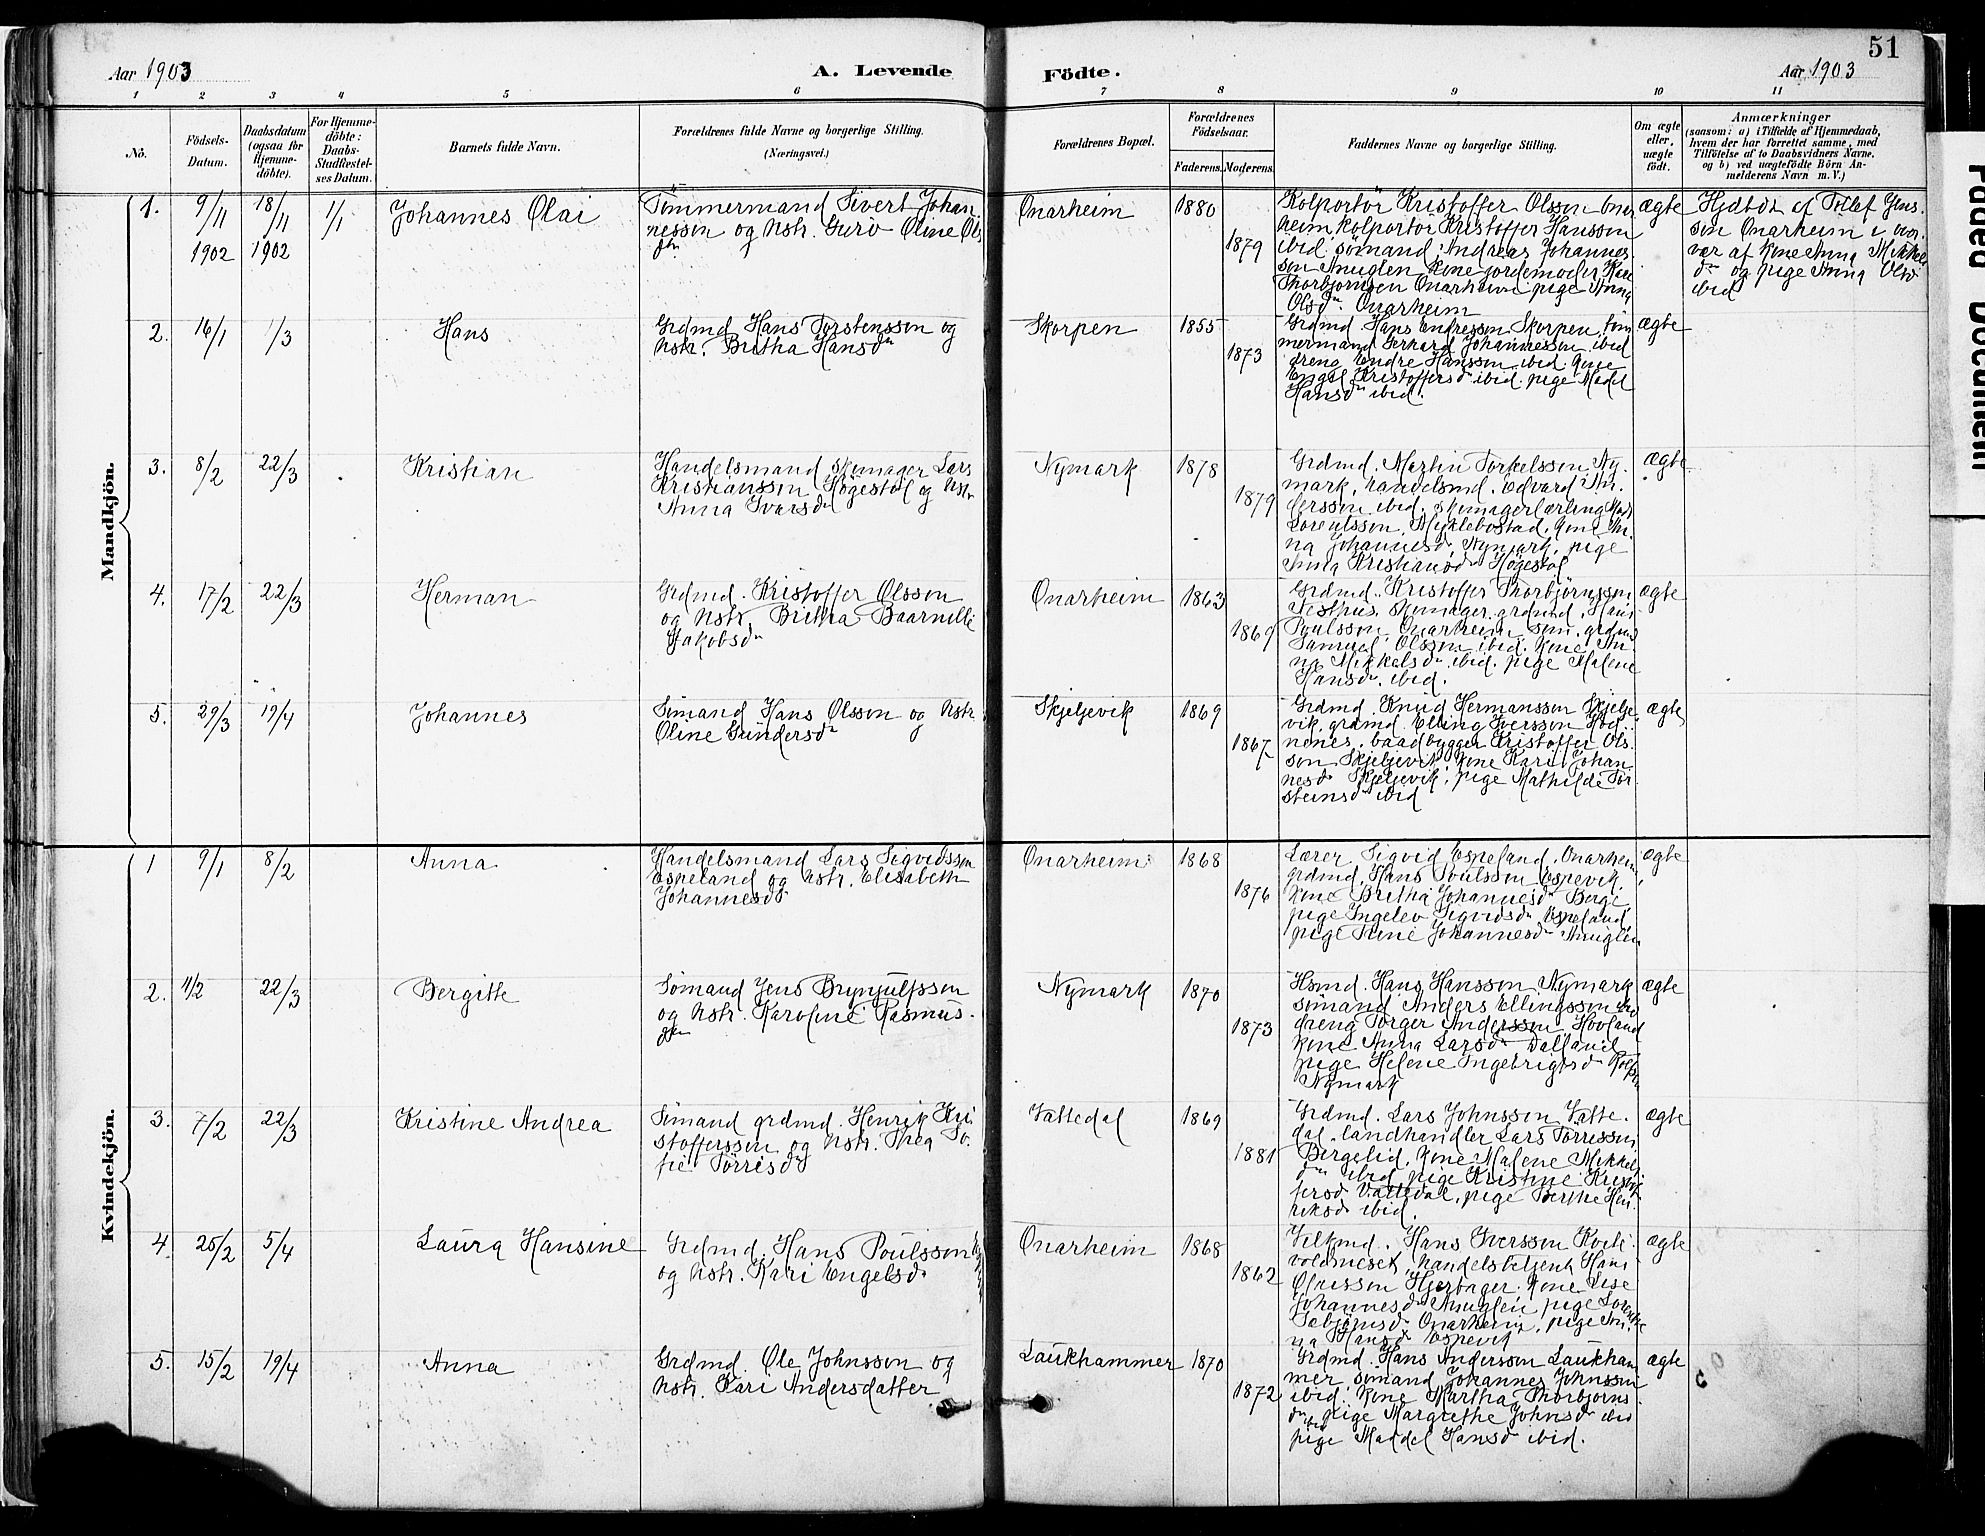 51
Aar 1903
A. Levende
Födte.
Aar 1903
1 2 3 4 5 6 7 8 9 10 11
No.
Födsels-
Datum.
Daabsdatum
(ogsaa for
Hjemme-
döbte).
For Hjemme-
döbte:
Daabs-
Stadfæstel-
ses Datum.
Barnets fulde Navn.
Forældrenes fulde Navne og borgerlige Stilling.
(Næringsvei.)
Forældrenes Bopæl.
Forældrenes
Födselsaar.
Faderens. Moderens.
Faddernes Navne og borgerlige Stilling.
Om ægte
eller
uægte
födt.
Anmærkninger
(saasom: a) i Tilfælde af Hjemmedaab,
hvem der har forrettet samme, med
Tilföielse af to Daabsvidners Navne,
og b) ved uægtefödte Börn An-
melderens Navn m. V.)
Mandkjön.
1.
9/11
1902
18/11
1902
1/1
Johannes Olai
Tömmermand Sivert Johan
nesson og hstr. Guro Oline Ols
dtr
Onarheim
1880
1879
Kolportör Kristoffer Olsson Onar
heim kolportör Kristoffer Hansson
ibid. sömand Andreas Johannes
son Anuglen kone jordemoder Kari
Thorbjornsen Onarheim pige Anna
Olsdr Onarheim
ægte
Hjdbt af Tollef Jens
son Onarheim i nær
vær af kone Anna Mikkels
dr og pige Anna Olsd
ibid
2.
16/1
1/3
Hans
Grdmd. Hans Torstensson og
hstr. Britha Hansdr
Skorpen
1855
1873
Grdmd. Hans Endresson Skorpen, töm
mermand Gerhard Johannesson ibid
dreng Endre Hansson ibid. kone
Engel Kristoffersdr ibid. pige Madel
Hansdr ibid.
ægte
3.
8/2
22/3
Kristian
Handelsmand, skomager Lars
Kristiansson Högestöl og hstr
Anna Ivarsdr
Nymark
1878
1879
Grdmd. Martin Torkelsson Ny
mark, handelsmd. Edvard An
dersson ibid. skomagerlærling
Lorentsson Myklebostad, kone An
na Johannesdr Nymark, pige
Anna Kristiansdr Högestöl
ægte
4.
17/2
22/3
Herman
Grdmd. Kristoffer Olsson
og hstr. Britha Baarnille
Jakobsdr
Onarheim
1863
1869
Grdmd. Kristoffer Thorbjörnsson
skomager, grdmd. Hans
Poulsson Onarheim, grdmd
Samuel Olsson ibid. kone An
na Mikkelsdr ibid. pige Malene
Hansdr ibid.
ægte
5.
29/3
19/4
Johannes
Sömand Hans Olsson og hstr
Oline Gundersdr
Skjeljevik
1869
1867
Grdmd. Knud Hermansson Skjelje
vik, grdmd. Elling Iversson Hod
nenes, baadbygger Kristoffer Ols
son Skjeljevik, kone Kari Johan
nesdr Skjeljevik, pige Mathilde Tor
steinsdr ibid
ægte
Kvindekjön.
1
9/1
8/2
Anna
Handelsmand Lars Sigvidsson
Espeland og hstr. Elisabeth
Johannesdr
Onarheim
1868
1876
Lærer Sigvid Espeland, Onarheim
grdmd. Hans Poulsson Espevik,
kone Britha Johannesdr Berge
pige Ingelev Sigvidsdr Espeland
pige Johannesdr Anuglen
ægte
2.
11/2
22/3
Bergitte
Sömand Jens Brynjulfsson
og hstr. Karoline Rasmus-
dtr
Nymark
1870
1873
Hsmd. Hans Hansson Nymark
sömand Anders Ellingsson ibid
dreng Torger Andersson Hovland
kone Anna Larsdr Dalland
pige Helene Ingebrigtsdr
Nymark
ægte
3.
7/2
22/3
Kristine Andrea
Sömand grdmd. Henrik Kri
stoffersson og hstr. Thea So
fie Törrisdr
Vattedal
1869
1881
Grdmd. Lars Johnsson Vatte
dal, landhandler Lars Törrisson
Bergelid, kone Malene Mikkels
dtr ibid, pige Kristine Kristof
fersdr Vattedal, pige Berthe Hen
riksdr ibid.
ægte
4.
25/2
5/4
Laura Hansine
Grdmd. Hans Poulsson
og hstr. Kari Engelsdr
Onarheim
1868
1862
Hans Iversson Kvite
voldneset, handelsbetjent Hans
Olaisson Hjertager, kone Lise
Johannesdr Anuglen pige
Onarheim, pige An
na Hansdr Espevik
ægte
5.
15/2
19/4
Anna
Grdmd. Ole Johnsson og
hstr. Kari Andersdatter
Laukhammer
1870
1872
Grdmd. Hans Andersson Laukham
mer, sömand Johannes Johnsson
ibid. kone Martha Thorbjorns
dr ibid pige Margrethe Johnsdr ibid
pige Maddel Hansdr ibid.
ægte